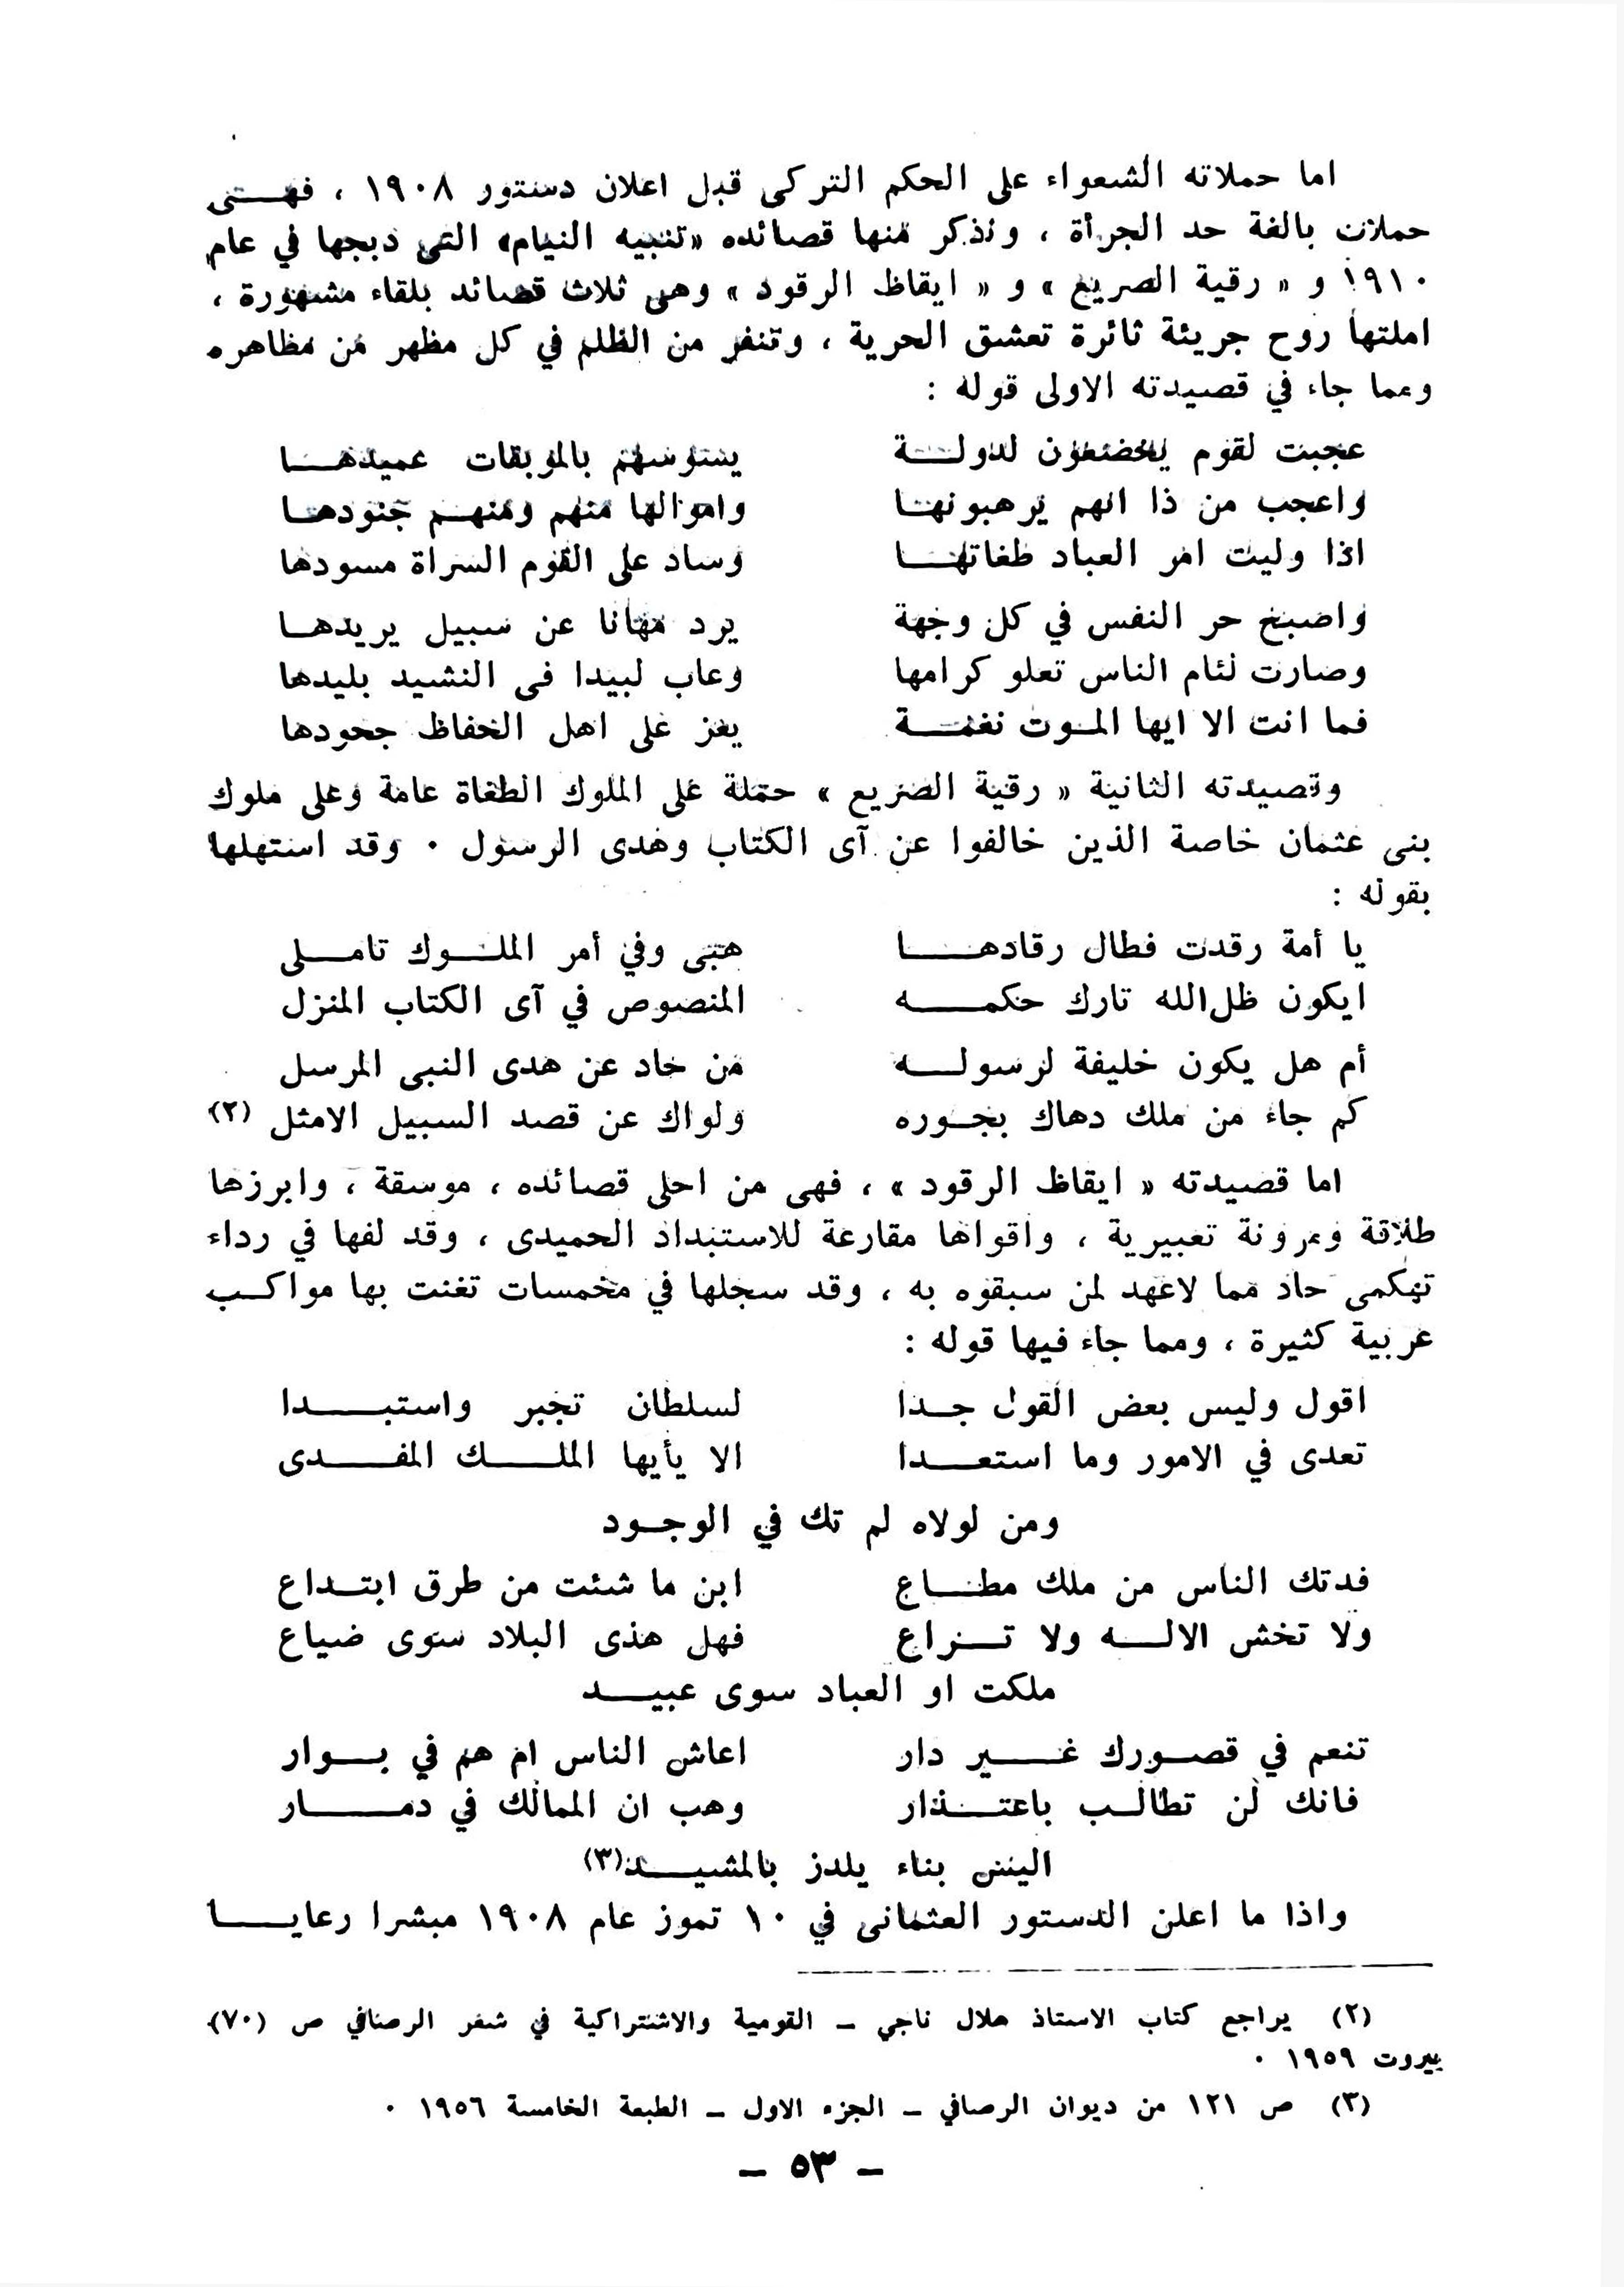 اما حملاته الشعواء على الحكم التركى قبل اعلان دستور ١٩٠٨ ، فهـــتى
حملات بالغة حد الجرأة ، ونذكر منها قصائده «تنبيه النيام» التى دبجها في عام
١٩١٠ و « رقية الصريع » و « ايقاظ الرقود » وهى ثلاث قصائد بلقاء مشهورة ،
املتها روح جريئة ثائرة تعشق الحرية ، وتنفر من الظلم في كل مظهر من مظاهره
ومما جاء في قصيدته الاولى قوله :
عجبت لقوم يخضعون لدولـــة يسوسهم بالموبقات عميدهـــا
واعجب من ذا انهم يرهبونهـا واموالها منهم ومنهـــم جنودهـا
اذا وليت امر العباد طغاتهـــا وساد على القوم السراة مسودها
واصبح حر النفس في كل وجهة يرد مهانا عن سبيل يريدهـــا
وصارت لئام الناس تعلو كرامها وعاب لبيدا فى النشيد بليدها
فما انت الا ايها المـوت نعمـــة يعز على اهل الحفاظ جحودها
وقصيدته الثانية « رقية الصريع » حملة على الملوك الطغاة عامة وعلى ملوك
بنى عثمان خاصة الذين خالفوا عن آى الكتاب وهدى الرسول . وقد استهلها
بقوله :
يا أمة رقدت فطال رقادهـــا هبى وفي أمر الملـــوك تامـــلى
ايكون ظل الله تارك حكمـــه المنصوص في آى الكتاب المنزل
أم هل يكون خليفة لرسولـــه من حاد عن هدى النبى المرسل
كم جاء من ملك دهاك بجـوره ولواك عن قصد السبيل الامثل (٢)
اما قصيدته « ايقاظ الرقود » ، فهى من احلى قصائده ، موسقة ، وابرزها
طلاقة ومرونة تعبيرية ، واقواها مقارعة للاستبداد الحميدى ، وقد لفها في رداء
تهكمى حاد مما لاعهد لمن سبقوه به ، وقد سجلها في مخمسات تغنت بها مواكـب
عربية كثيرة ، ومما جاء فيها قوله :
اقول وليس بعض القول جـدا لسلطان تجبر واستبـــدا
تعدى في الامور وما استعـــدا الا يأيها الملـــك المفـــدى
ومن لولاه لم تك في الوجـود
فدتك الناس من ملك مطـــاع ابن ما شئت من طرق ابتـداع
ولا تخش الالـــه ولا تـــراع فهل هذى البلاد سوى ضياع
ملكت او العباد سوى عبيـــد
تنعم في قصـورك غـــير دار اعاش الناس ام هم في بـــوار
فانك لن تطالـب باعتـــذار وهب ان الممالك في دمـــار
اليس بناء يلدز بالمشيـــد(٣)
واذا ما اعلن الدستور العثمانى في ١٠ تموز عام ١٩٠٨ مبشرا رعايـــا
(٢) يراجع كتاب الاستاذ هلال ناجي ــ القومية والاشتراكية في شعر الرصافي ص (٧٠)
بيروت ١٩٥٩ .
(٣) ص ١٢١ من ديوان الرصافي ــ الجزء الاول ــ الطبعة الخامسة ١٩٥٦ .
ــ ٥٣ ــ